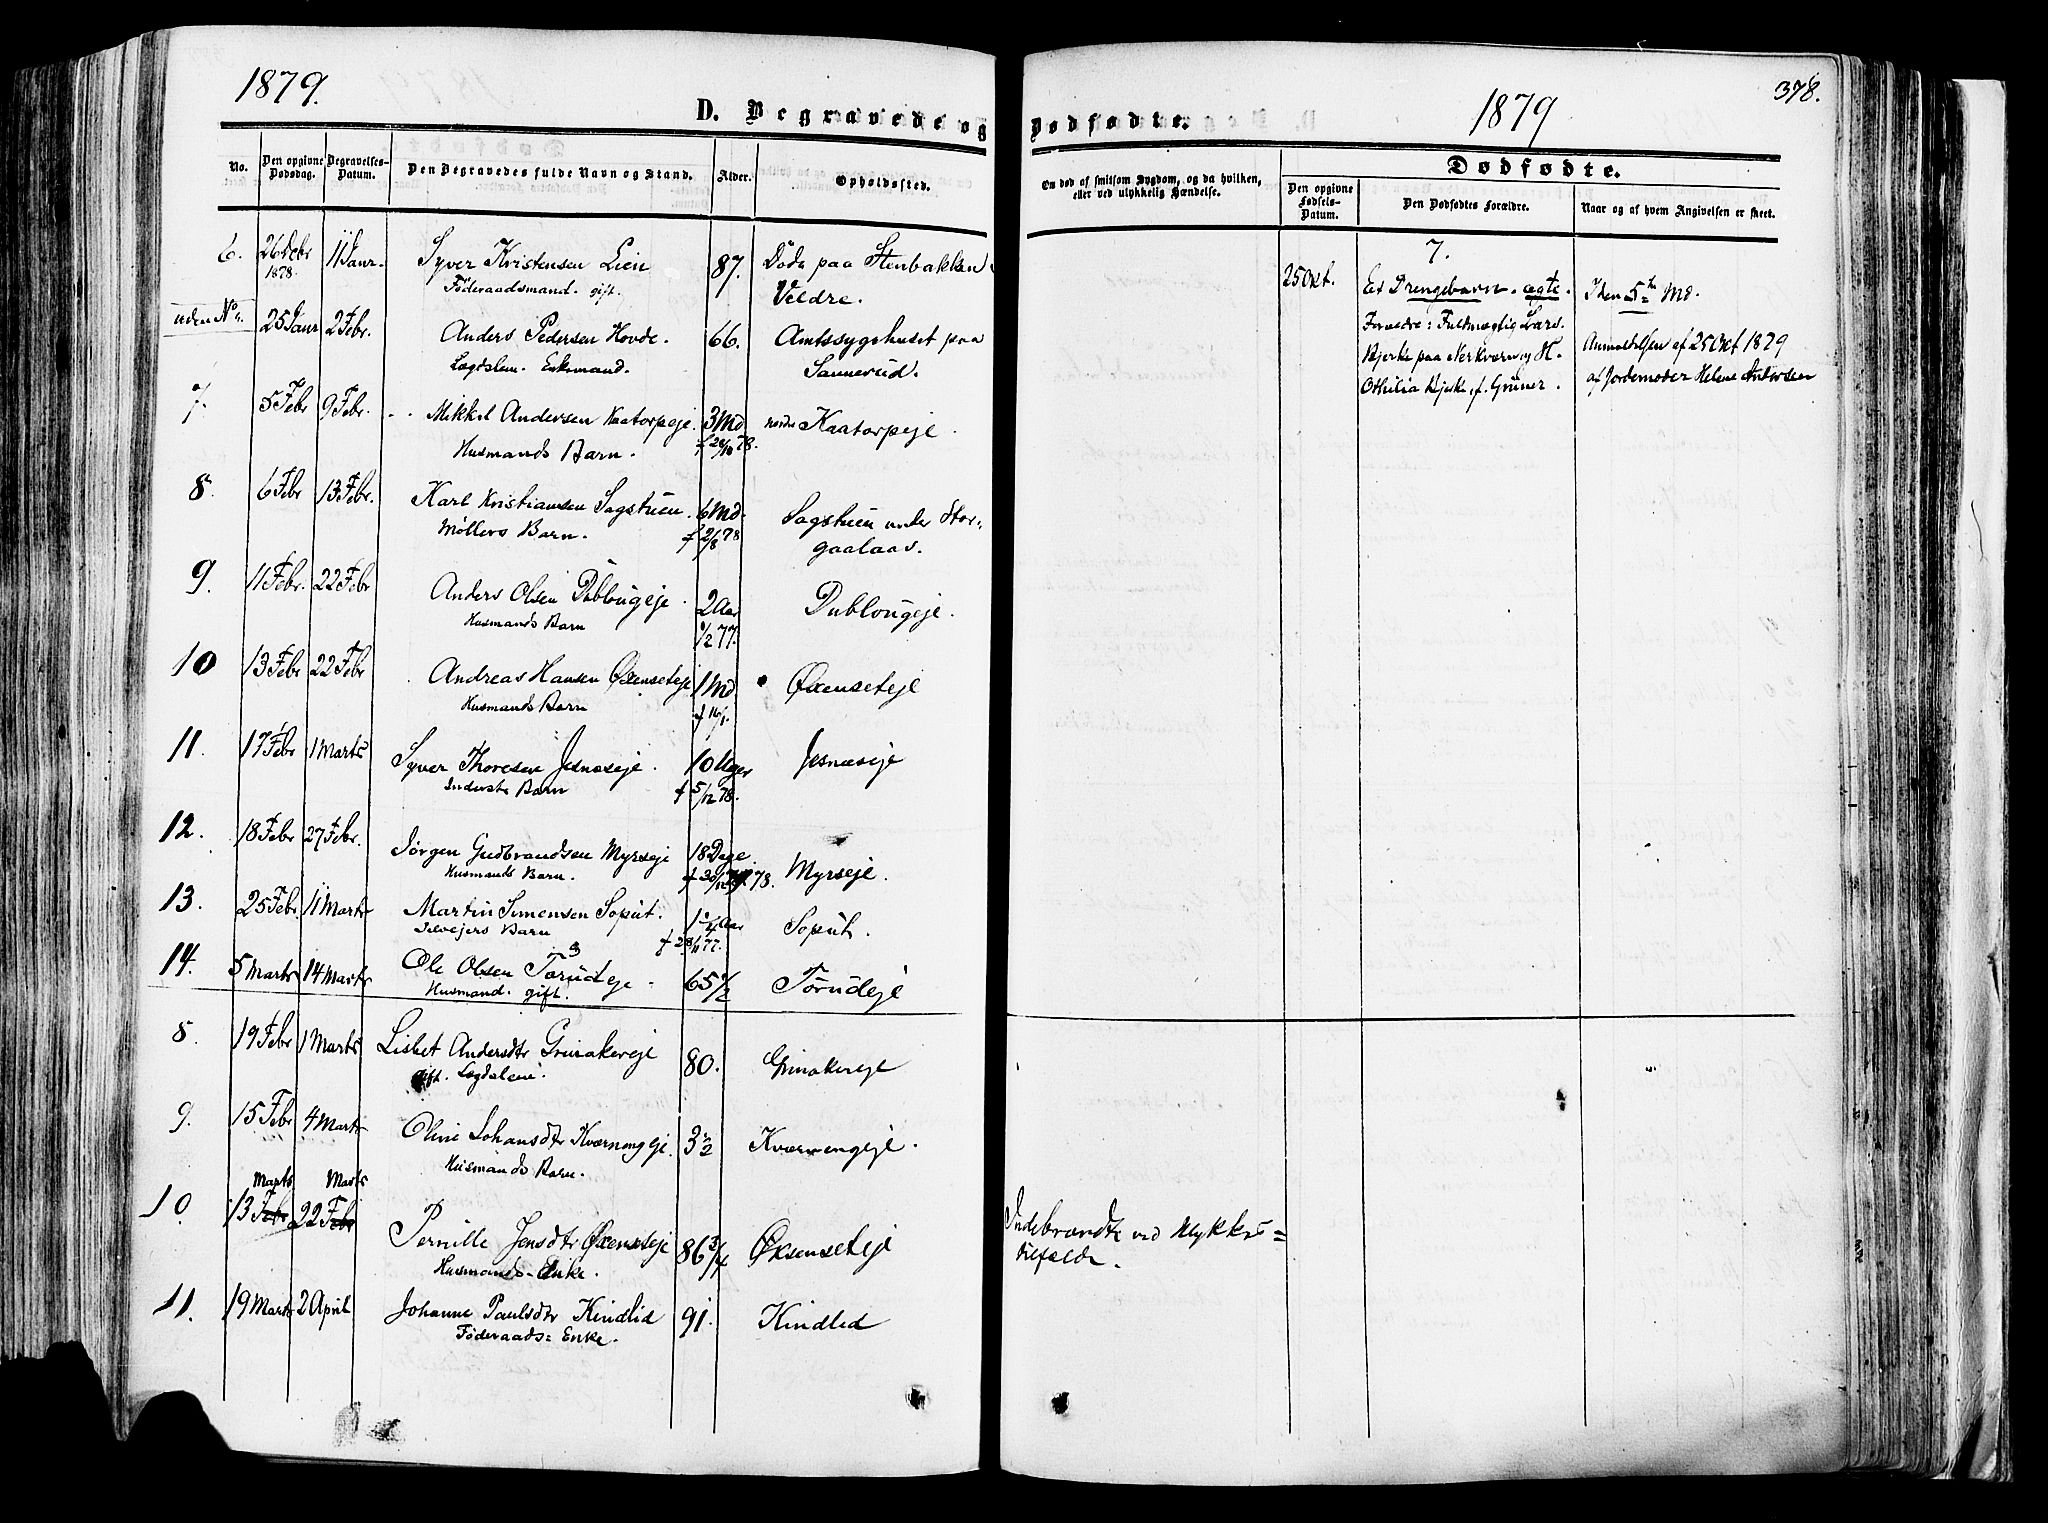 1879.
D. Begravede og
No. Den opgivne Dødsdag. Begravelses-Datum. Den Begravedes fulde Navn og Stand. Alder. Opholdssted.
6. 26 Debr 1878. 11 Janr. Syver Kristensen Lien 87. Døde paa Stenbakken
Føderaadsmand. gift. Veldre.
uden No. 25 Janr 2 Febr. Anders Pedersen Hovde. 66. Amtssygehuset paa
Lægdslem. Enkemand. Sannerud.
7. 5 Febr 9 Febr. Mikkel Andersen Kaatorpeje. 3 Md nordre Kaatorpeje.
Husmands Barn. f 28/10 78.
8. 6 Febr 13 Febr. Karl Kristiansen Sagstuen. 6 Md. Sagstuen under Stor-
Møllers Barn. f 2/8 78 gaalaas.
9. 11 Febr. 22 Febr Anders Olsen Dublougeje. 2 Aar Dublougeje.
Husmands Barn /2 77.
10 13 Febr 22 Febr Andreas Hansen Øxenseteje 1 Md Øxenseteje
Husmands Barn f 16/1.
11. 17 Febr 1 Marts Syver Thoresen Jesnæseje. 10 Uger Jesnæseje
Inderste Barn f 5/12 78.
12. 18 Febr 27 Febr. Jørgen Gudbrandsen Myrseje 18 Dage. Myrseje.
Husmands Barn. f 30/12 78.
13. 25 Febr. 11 Marts Martin Simensen Soput. 1 1/4 Aar Soput.
Selvejers Barn f 28/11 77.
14. 5 Marts 14 Marts Ole Olsen Torudeje. 65 1/2 Torudeje
Husmand. gift.
8. 19 Febr 1 Marts Lisbet Andersdtr Grinakereje 80. Grinakereje
gift. Lægdslem.
9. 15 Febr 4 Marts Oline Johansdtr Kværnengeje. 3 1/2 Kværnengeje.
Husmands Barn.
Marts Marts
10. 13 Febr 22 Febr Pernille Jensdtr Øxenseteje 86 3/4 Øksenseteje
Husmands-Enke.
11. 19 Marts 2 April Johanne Paulsdtr Kindlid 91. Kindled
Føderaads= Enke.
Dødfødte.
1879
378.
Om død af smitsom Sygdom, og da hvilken, eller ved ulykkelig Hændelse.
Dødfødte.
Den opgivne Fødsels-Datum. Den Dødfødtes Forældre. Naar og af hvem Angivelsen er skeet.
7.
25 Okt. Et Drengebarn. ægte. I den 5te Md.
Forældre: Fuldmægtig Lars
Bjerke paa Nerkværn og H. Anmeldelsen af 25 Okt 1879
Othilia Bjerke, f. Grüner. af Jordemoder Helene Andersen
Indebrændte ved Ulykkes=
tilfælde.